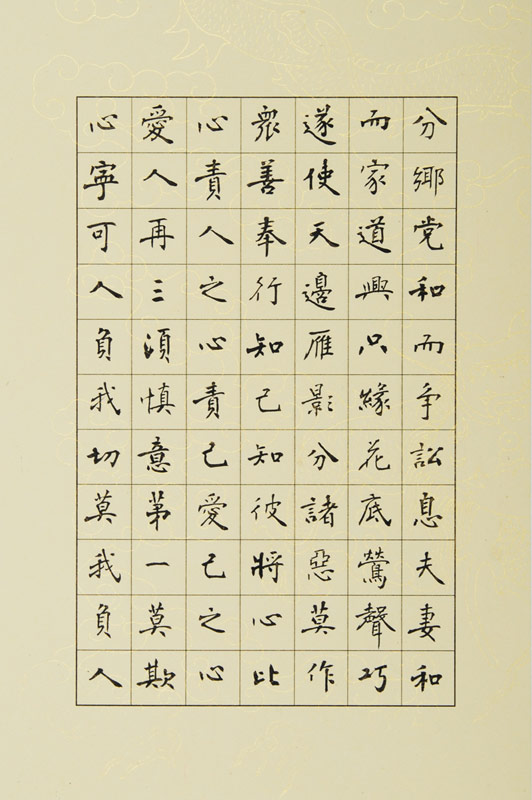 分鄉党和而争訟息夫妻和
而家道興只緣花底鶯聲巧
遂使天邊雁影分諸惡莫作
衆善奉行知己知彼將心比
心責人之心責己愛己之心
愛人再三須慎意第一莫欺
心寜可人負我切莫我負人